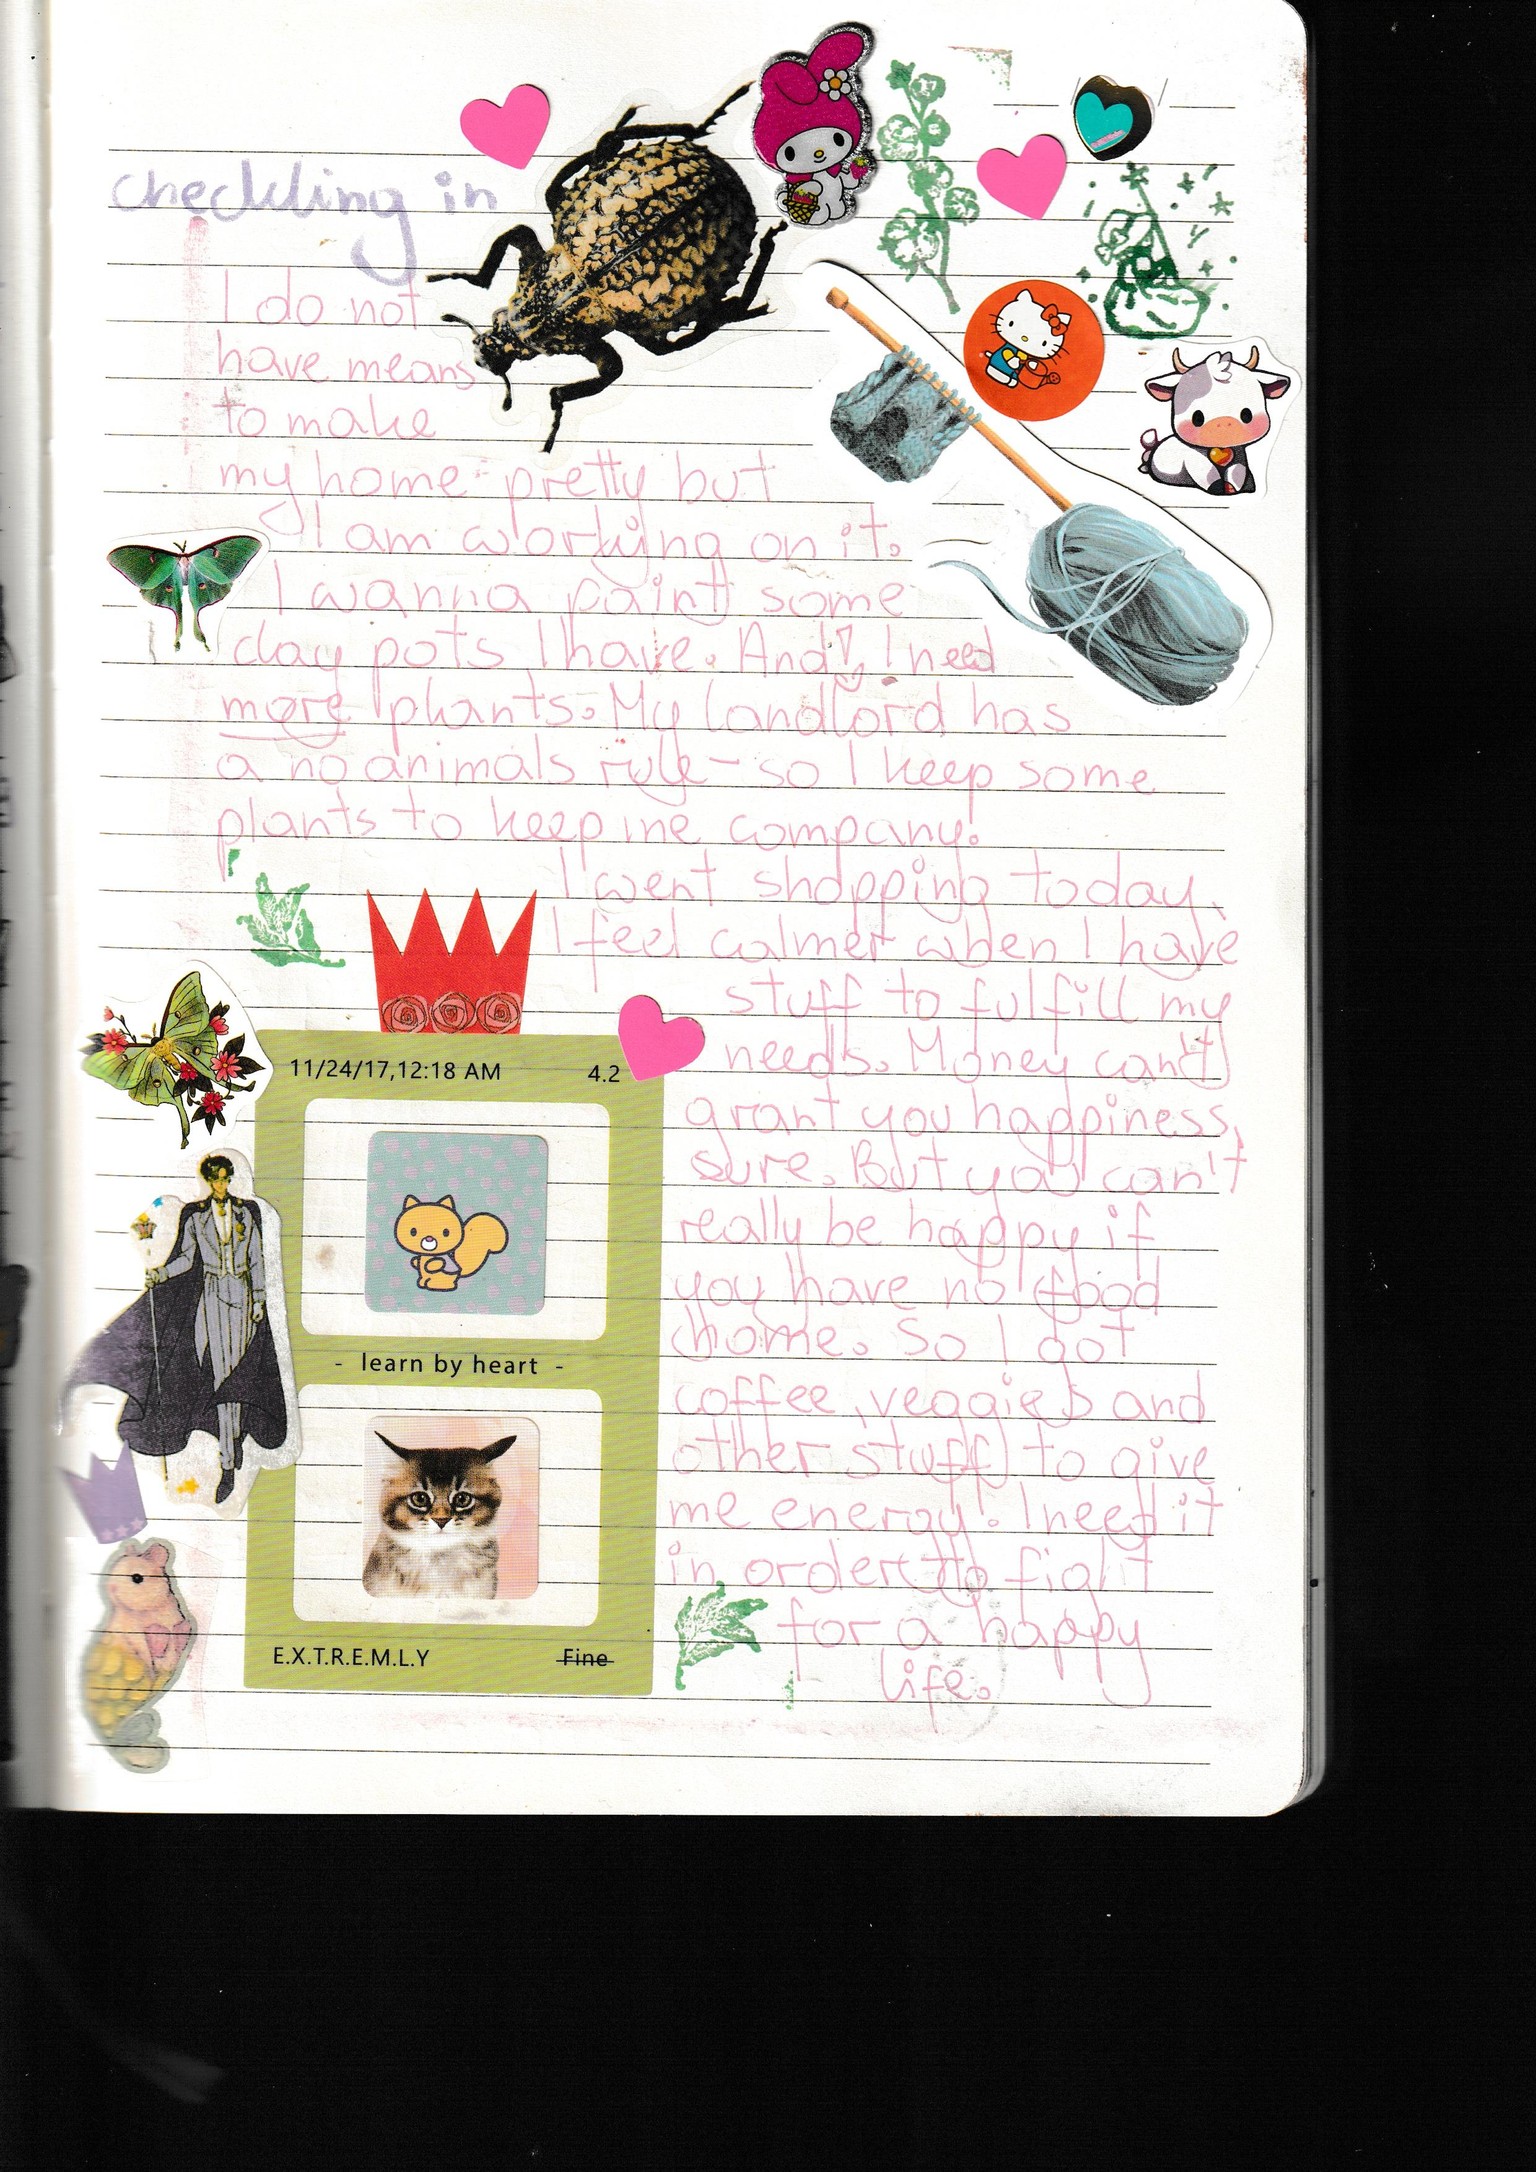 checkking in
I do not
have means
to make
my home pretty but
I am working on it.
I wanna paint some
clay pots I have. And! I need
more plants. My landlord has
a no animals rule - so I keep some
plants to keep me company!
I went shopping today.
I feel calmer when I have
stuff to fulfill my
needs. Money can't
grant you happiness,
sure. But you can't
really be happy if
you have no food
home. So I got
coffee, veggies and
other stuff to give
me energy! I need it
in order to fight
for a happy
life.
11/24/17,12:18 AM 4.2
- learn by heart -
E.X.T.R.E.M.L.Y Fine